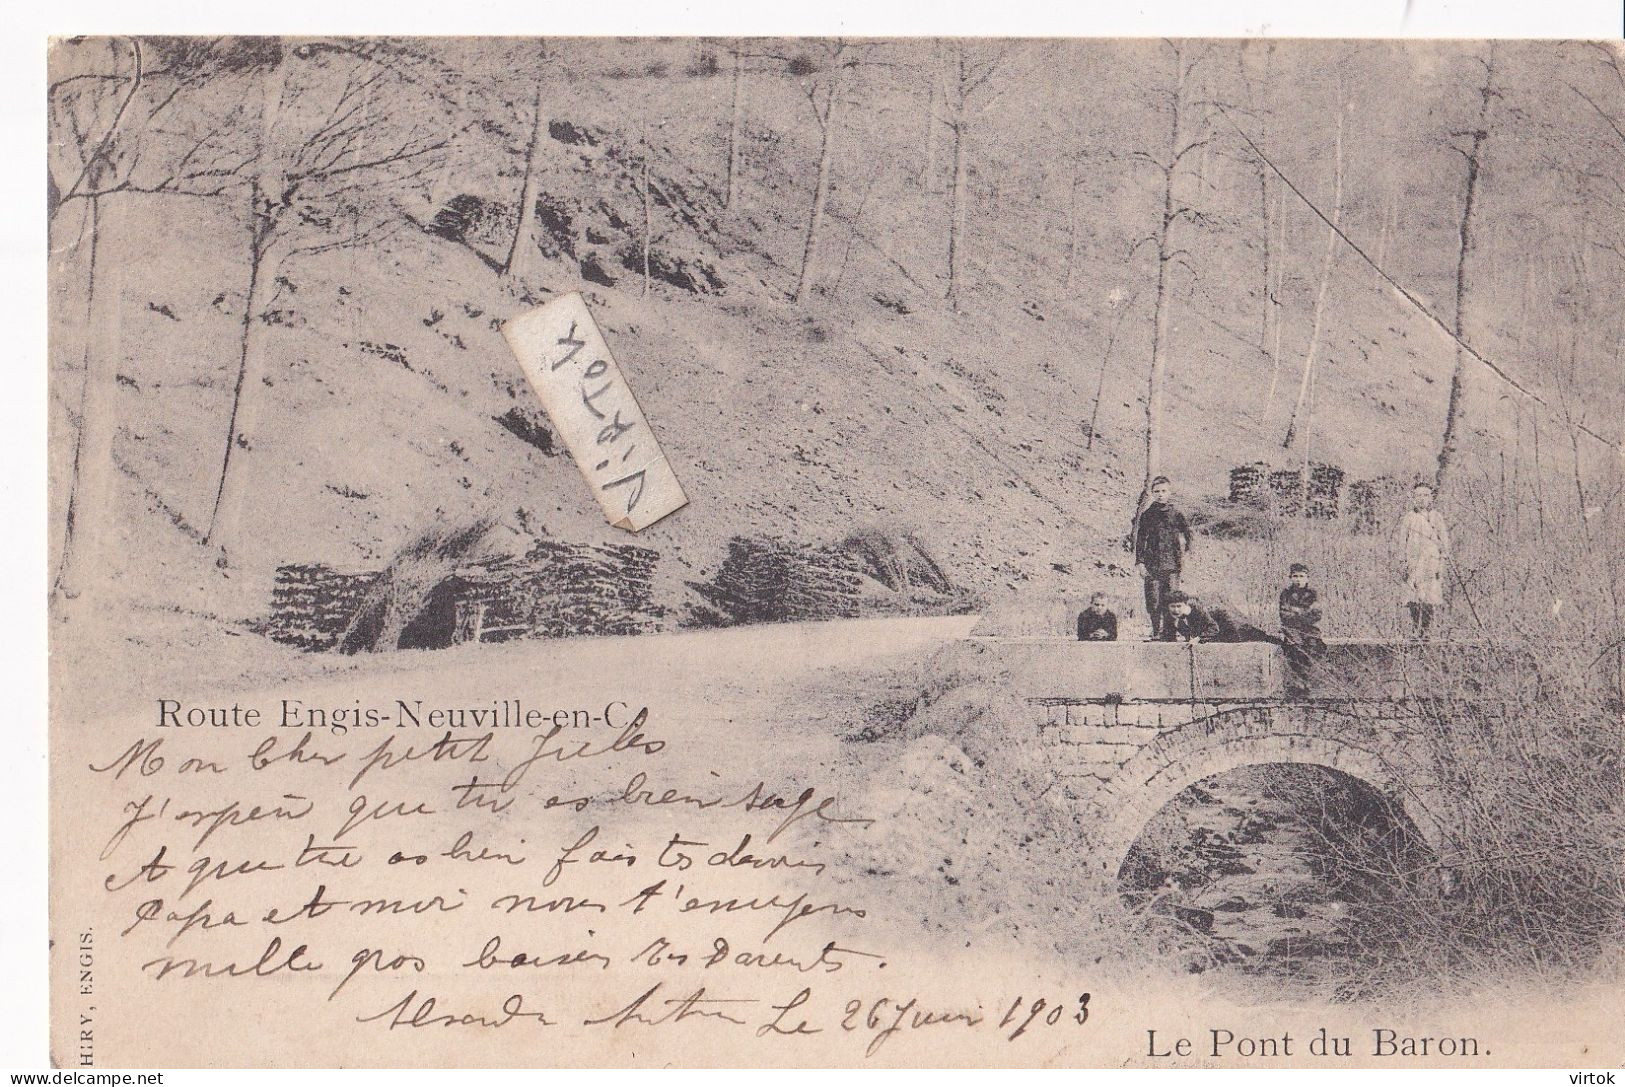 ViRTOK
Route Engis-Neuville-en-C.
Mon Cher petit Jules
J'espere que tu es bien sage
et que tu as bien fais tes devoirs
Papa et moi nous t'envoyons
mille gros baisers Tes Parents.
Le 26 Juin 1903
HIRY, ENGIS.
Le Pont du Baron.
virtok